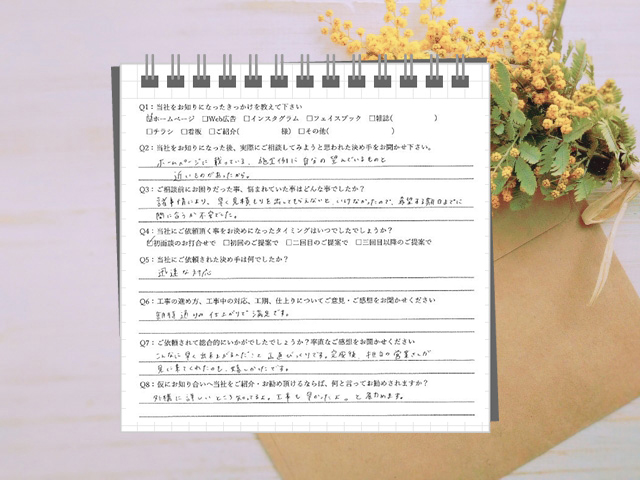 Q1：当社をお知りになったきっかけを教えて下さい
☑ホームページ □Web広告 □インスタグラム □フェイスブック □雑誌( )
□チラシ □看板 □ご紹介( 様) □その他( )
Q2：当社をお知りになった後、実際にご相談してみようと思われた決め手をお聞かせ下さい。
ホームページに載っている、施工例に自分の望んでいるものと
近いものがあったから。
Q3：ご相談前にお困りだった事、悩まれていた事はどんな事でしたか？
諸事情により、早く見積もりを出してもらえないと、いけなかったので、希望する期日までに
間に合うか不安でした。
Q4：当社にご依頼頂く事をお決めになったタイミングはいつでしたでしょうか？
☑初回面談のお打合せで □初回のご提案で □二回目のご提案で □三回目以降のご提案で
Q5：当社にご依頼された決め手は何でしたか？
迅速な対応
Q6：工事の進め方、工事中の対応、工期、仕上りについてご意見・ご感想をお聞かせください
期待通りの仕上がりで満足です。
Q7：ご依頼されて総合的にいかがでしたでしょうか？率直なご感想をお聞かせください
こんなに早く出来上がるんだ！と正直びっくりです。完成後、担当の営業さんが
見に来てくれたのも、嬉しかったです。
Q8：仮にお知り合いへ当社をご紹介・お勧め頂けるならば、何と言ってお勧めされますか？
外構に詳しいところ知ってるよ。工事も早かったよ。と言われます。